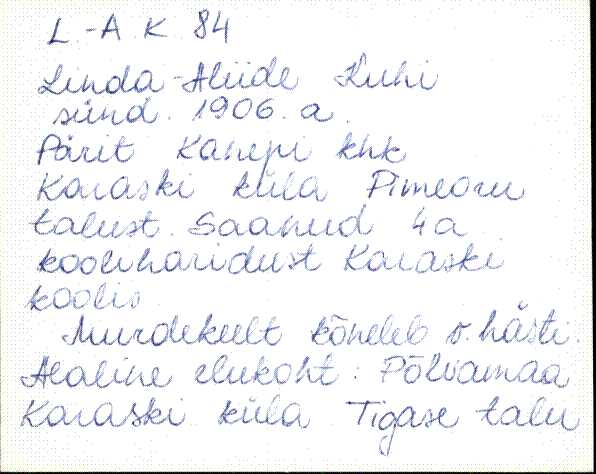 L.-A K 84
Linda-Aliide Kuhi
sünd. 1906. a.
Pärit Kanepi khk
Karaski küla Pimeoru
talust. Saanud 4 a
kooliharidust Karaski
koolis
Murdekeelt kõneleb v. hästi.
Alaline elukoht: Põlvamaa
Karaski küla Tigase talu